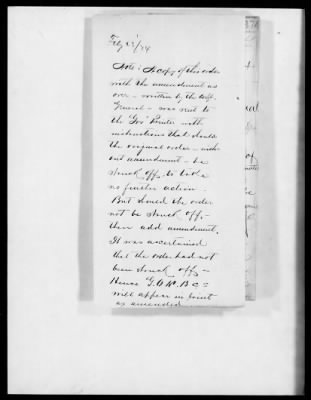 Feby 25/74
Note: A copy of this order
with the amendment as
over - written by the
General - was sent to
the Gov Printer with
instructions that should
the original order - with
out amendment - be
struck off, to take
no further action -
But should the order
not be struck off, -
then add amendment.
It was ascertained
that the order had not
been struck off, -
Hence G.O. No.
will appear in print
as amended